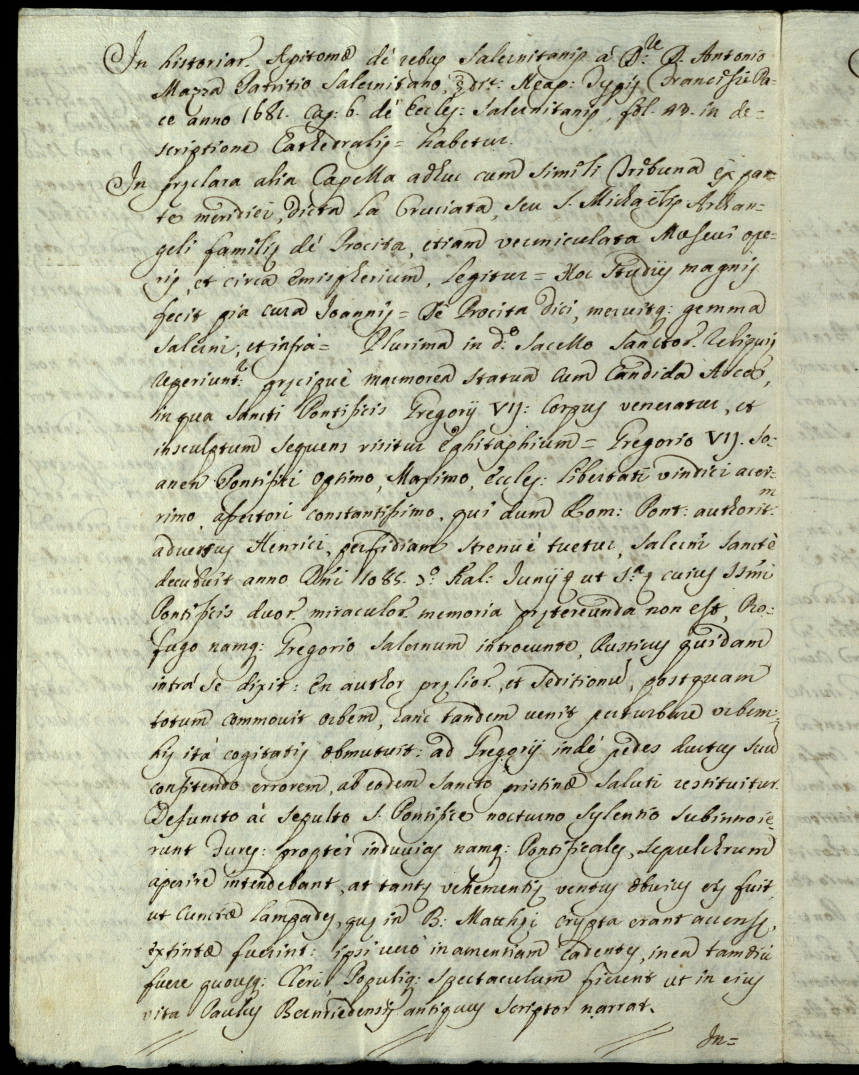 In historiar. Epitome de rebus Salernitanis á D.re D. Antonio
Mazza Patritio Salernitano, edit: Neap: Typis Francisci Pa-
ce anno 1681. Cap: 6. dé Eccles: Salernitanis, fol. 43. in de-
scriptione Cathedralis= habetur.
In pręclara alia Capella adhuc cum simili Tribuna ex par-
te meridiei, dicta la Cruciata, seu S. Michaelis Arhan-
geli familię dé Procita, etiam vermiculata Museui ope-
ris, et circa emispherium, legitur= Hoc studijs magnis
fecit pia cura Joannis= De Procita dici, meruitq: gemma
Salerni, et infrà= Plurima in d.o Sacello Sanctor. Reliquię
reperiunt.r pręcipuè marmorea statua cum candida Arca,
in qua Sancti Pontificis Gregorij VII: Corpus veneratur, et
insculptum sequens visitur Ephitaphium= Gregorio VII. So-
anen Pontifici optimo, Maximo, Eccles: libertati vindici acer-
rimo, assertori constantissimo, qui dum Rom: Pont: authorit:m
adversus Henrici, perfidiam strenuè tuetur, Salerni sanctè
decubuit anno Dni 1085. 3.o Kal: Junij
Pontificis duor. miraculor. memoria prętereunda non est, Pro-
fugo namq: Gregorio Salernum introeunte, Rusticus quidam
intrá se dixit: En author pręlior. et seditionu, postquam
totum commovit orbem, hanc tandem venit perturbare urbem:
his ità cogitatis obmutuit: ad Gregorij indè pedes ductus suu
confitendo errorem, ab eodem Sancto pristinæ saluti restituitur.
Defuncto ác sepulto S. Pontifice nocturno sylentio subintroie-
runt Fures: proptèr induvias namq: Pontificales, Sepulchrum
aperire intendebant, at tantę vehementię ventus obvius eis fuit,
ut cunctæ lampades, quę in B: Matthęi crypta erant accensę,
extintæ fuerint: ipsi verò in amentiam cadentes, in ea tamdiù
fuere quousq: Cleri, Populiq: spectaculum fierent ut in eius
vita Paulus Bernriedensis antiquus scriptor narrat.
In=